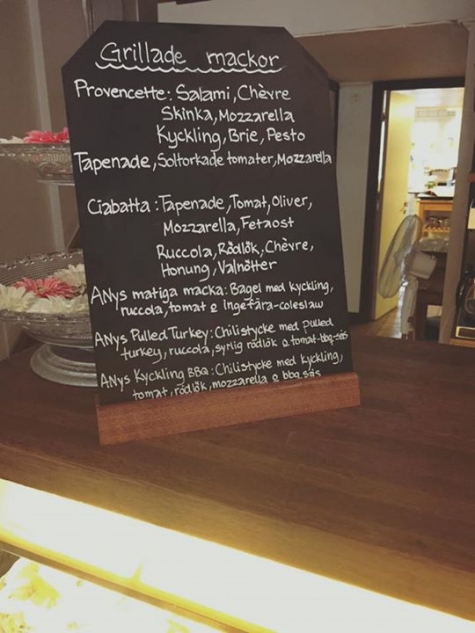 Grillade mackor
Provencette: Salami, Chèvre
Skinka, Mozzarella
Kyckling, Brie, Pesto
Tapenade, Soltorkade tomater, Mozzarella
Ciabatta: Tapenade, Tomat, Oliver,
Mozzarella, Fetaost
Ruccola, Rödlök, Chèvre,
Honung, Valnötter
ANys matiga macka: Bagel med kyckling,
ruccola, tomat & ingefära-coleslaw
ANys Pulled Turkey: Chilistycke med pulled
turkey, ruccola, syrlig rödlök & tomat-bbq-sås
ANys Kyckling BBQ: Chilistycke med kyckling,
tomat, rödlök, mozzarella & bbq.sås